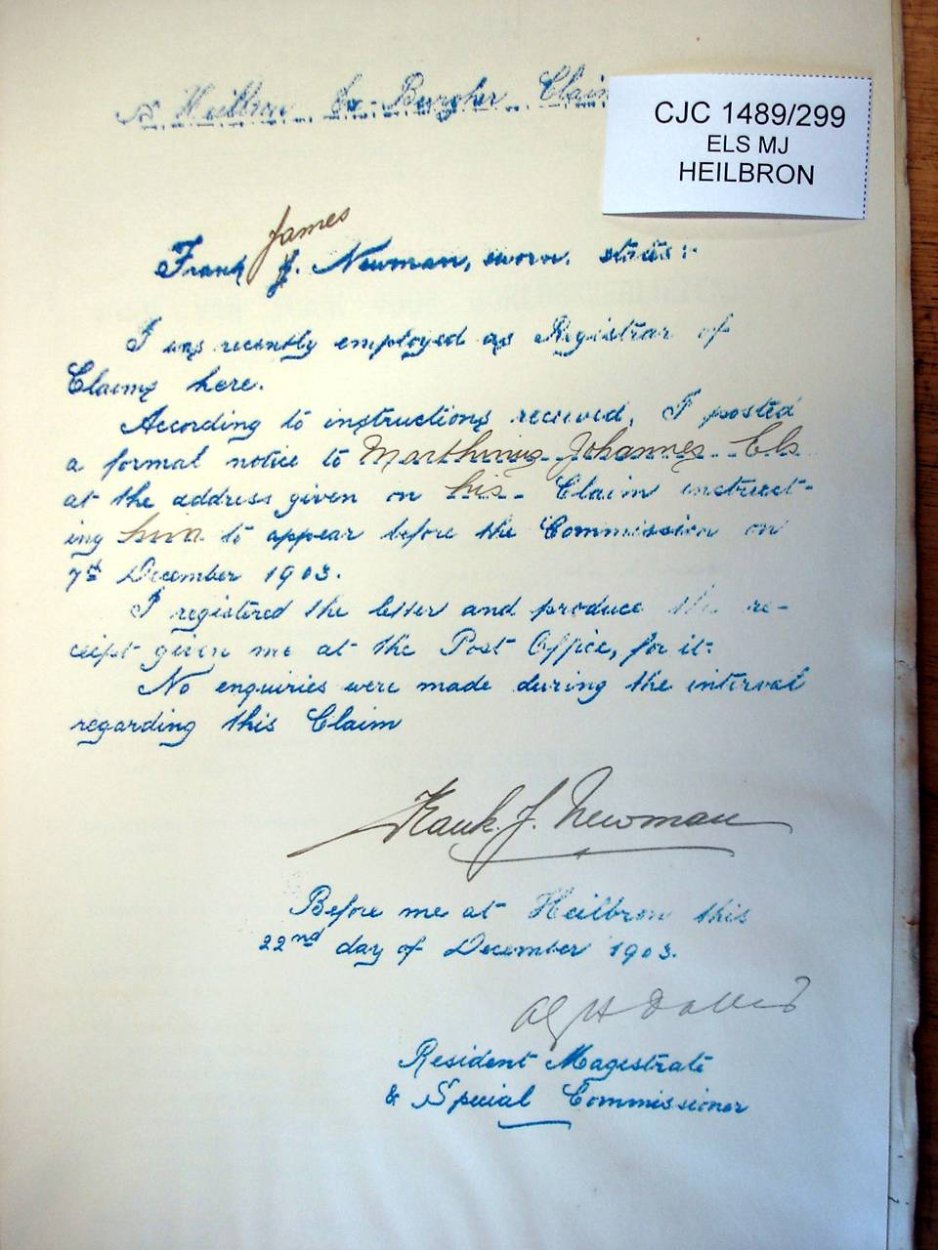 Heilbron Ex-Burgher Claim
CJC 1489/299
ELS MJ
HEILBRON
James
Frank J. Newman, sworn, states:
I was recently employed as Registrar of
Claims here.
According to instructions recieved, I posted
a formal notice to Marthinus Johannes Els
at the address given on his Claim instruct-
ing him to appear before the Commission on
7th December 1903.
I registered the letter and produce the re-
ceipt given me at the Post Office, for it.
No enquiries were made during the interval
regarding this Claim
Frank. J. Newman
Before me at Heilbron this
22nd day of December 1903.
Resident Magistrate
& Special Commissioner